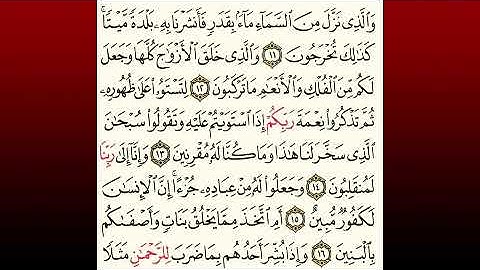 وَٱلَّذِى نَزَّلَ مِنَ ٱلسَّمَآءِ مَآءًۢ بِقَدَرٍ فَأَنشَرْنَا بِهِۦ بَلْدَةً مَّيْتًا ۚ
كَذَٰلِكَ تُخْرَجُونَ ١١ وَٱلَّذِى خَلَقَ ٱلْأَزْوَٰجَ كُلَّهَا وَجَعَلَ
لَكُم مِّنَ ٱلْفُلْكِ وَٱلْأَنْعَٰمِ مَا تَرْكَبُونَ ١٢ لِتَسْتَوُۥا۟ عَلَىٰ ظُهُورِهِۦ
ثُمَّ تَذْكُرُوا۟ نِعْمَةَ رَبِّكُمْ إِذَا ٱسْتَوَيْتُمْ عَلَيْهِ وَتَقُولُوا۟ سُبْحَٰنَ
ٱلَّذِى سَخَّرَ لَنَا هَٰذَا وَمَا كُنَّا لَهُۥ مُقْرِنِينَ ١٣ وَإِنَّآ إِلَىٰ رَبِّنَا
لَمُنقَلِبُونَ ١٤ وَجَعَلُوا۟ لَهُۥ مِنْ عِبَادِهِۦ جُزْءًا ۚ إِنَّ ٱلْإِنسَٰنَ
لَكَفُورٌ مُّبِينٌ ١٥ أَمِ ٱتَّخَذَ مِمَّا يَخْلُقُ بَنَاتٍ وَأَصْفَىٰكُم
بِٱلْبَنِينَ ١٦ وَإِذَا بُشِّرَ أَحَدُهُم بِمَا ضَرَبَ لِلرَّحْمَٰنِ مَثَلًا